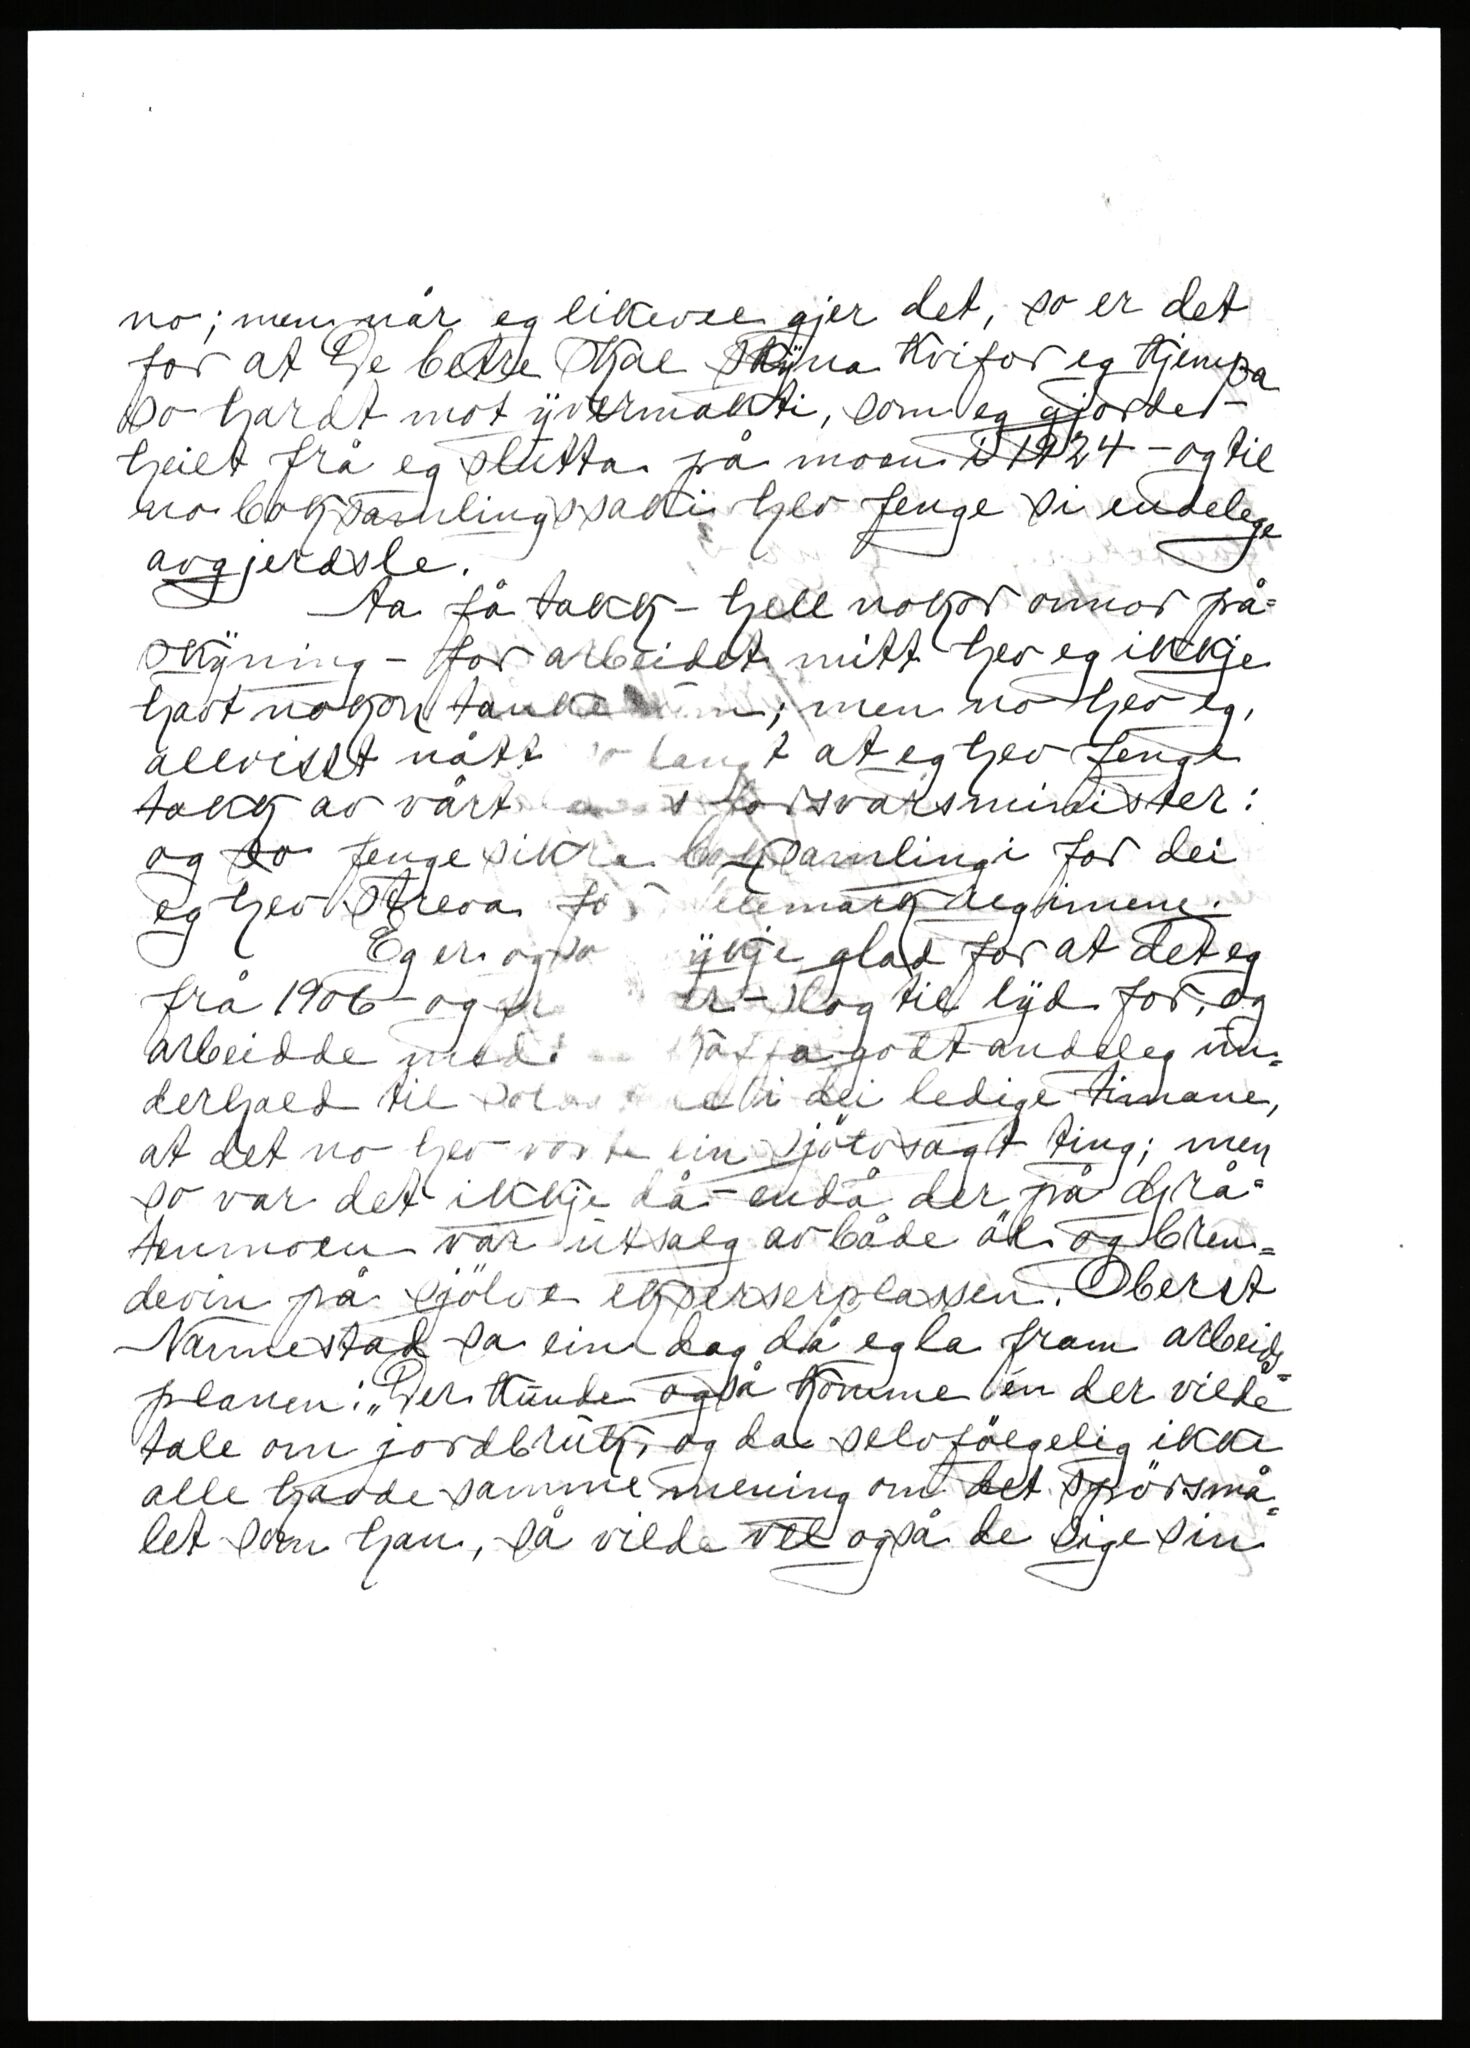 no; men når eg likevel gjer det, so er det
for at De betre skal skyna kvifor eg kjempa
so hardt mot yvermakti, som eg gjorde -
heilt frå eg slutta på moen i 1924 - og til
no boksamlingssaki hev fenge si endelege
avgjerdsle.
Aa få takk - hell nokor onnor på=
skyning - for arbeidet mitt hev eg ikkje
havt nokon tanke um; men no hev eg,
allvisst nått so langt at eg hev fenge
takk av vårt forsvarsminister:
og so fenge sikra boksamlingi for dei
eg hev streva for Telemark regimene.
Eg er ogso ykje glad for at det eg
frå 1906 - og slog til lyd for, og
arbeidde med godt andeleg un=
derhald til i dei ledige timane,
at det no hev vorte ein sjölvsagt ting; men
so var det ikkje då - endå der på Grå=
tenmoen var utsalg av både öl og bren=
devin på sjölve ekserserplassen. Oberst
Narmestad sa ein dag då eg la fram arbeids=
planen: „Der kunde også komme én der vilde
tale om jordbruk, og da selvfölgelig ikke
alle havde samme mening om det spörsmå=
let som han, så vilde vel også de sige sin